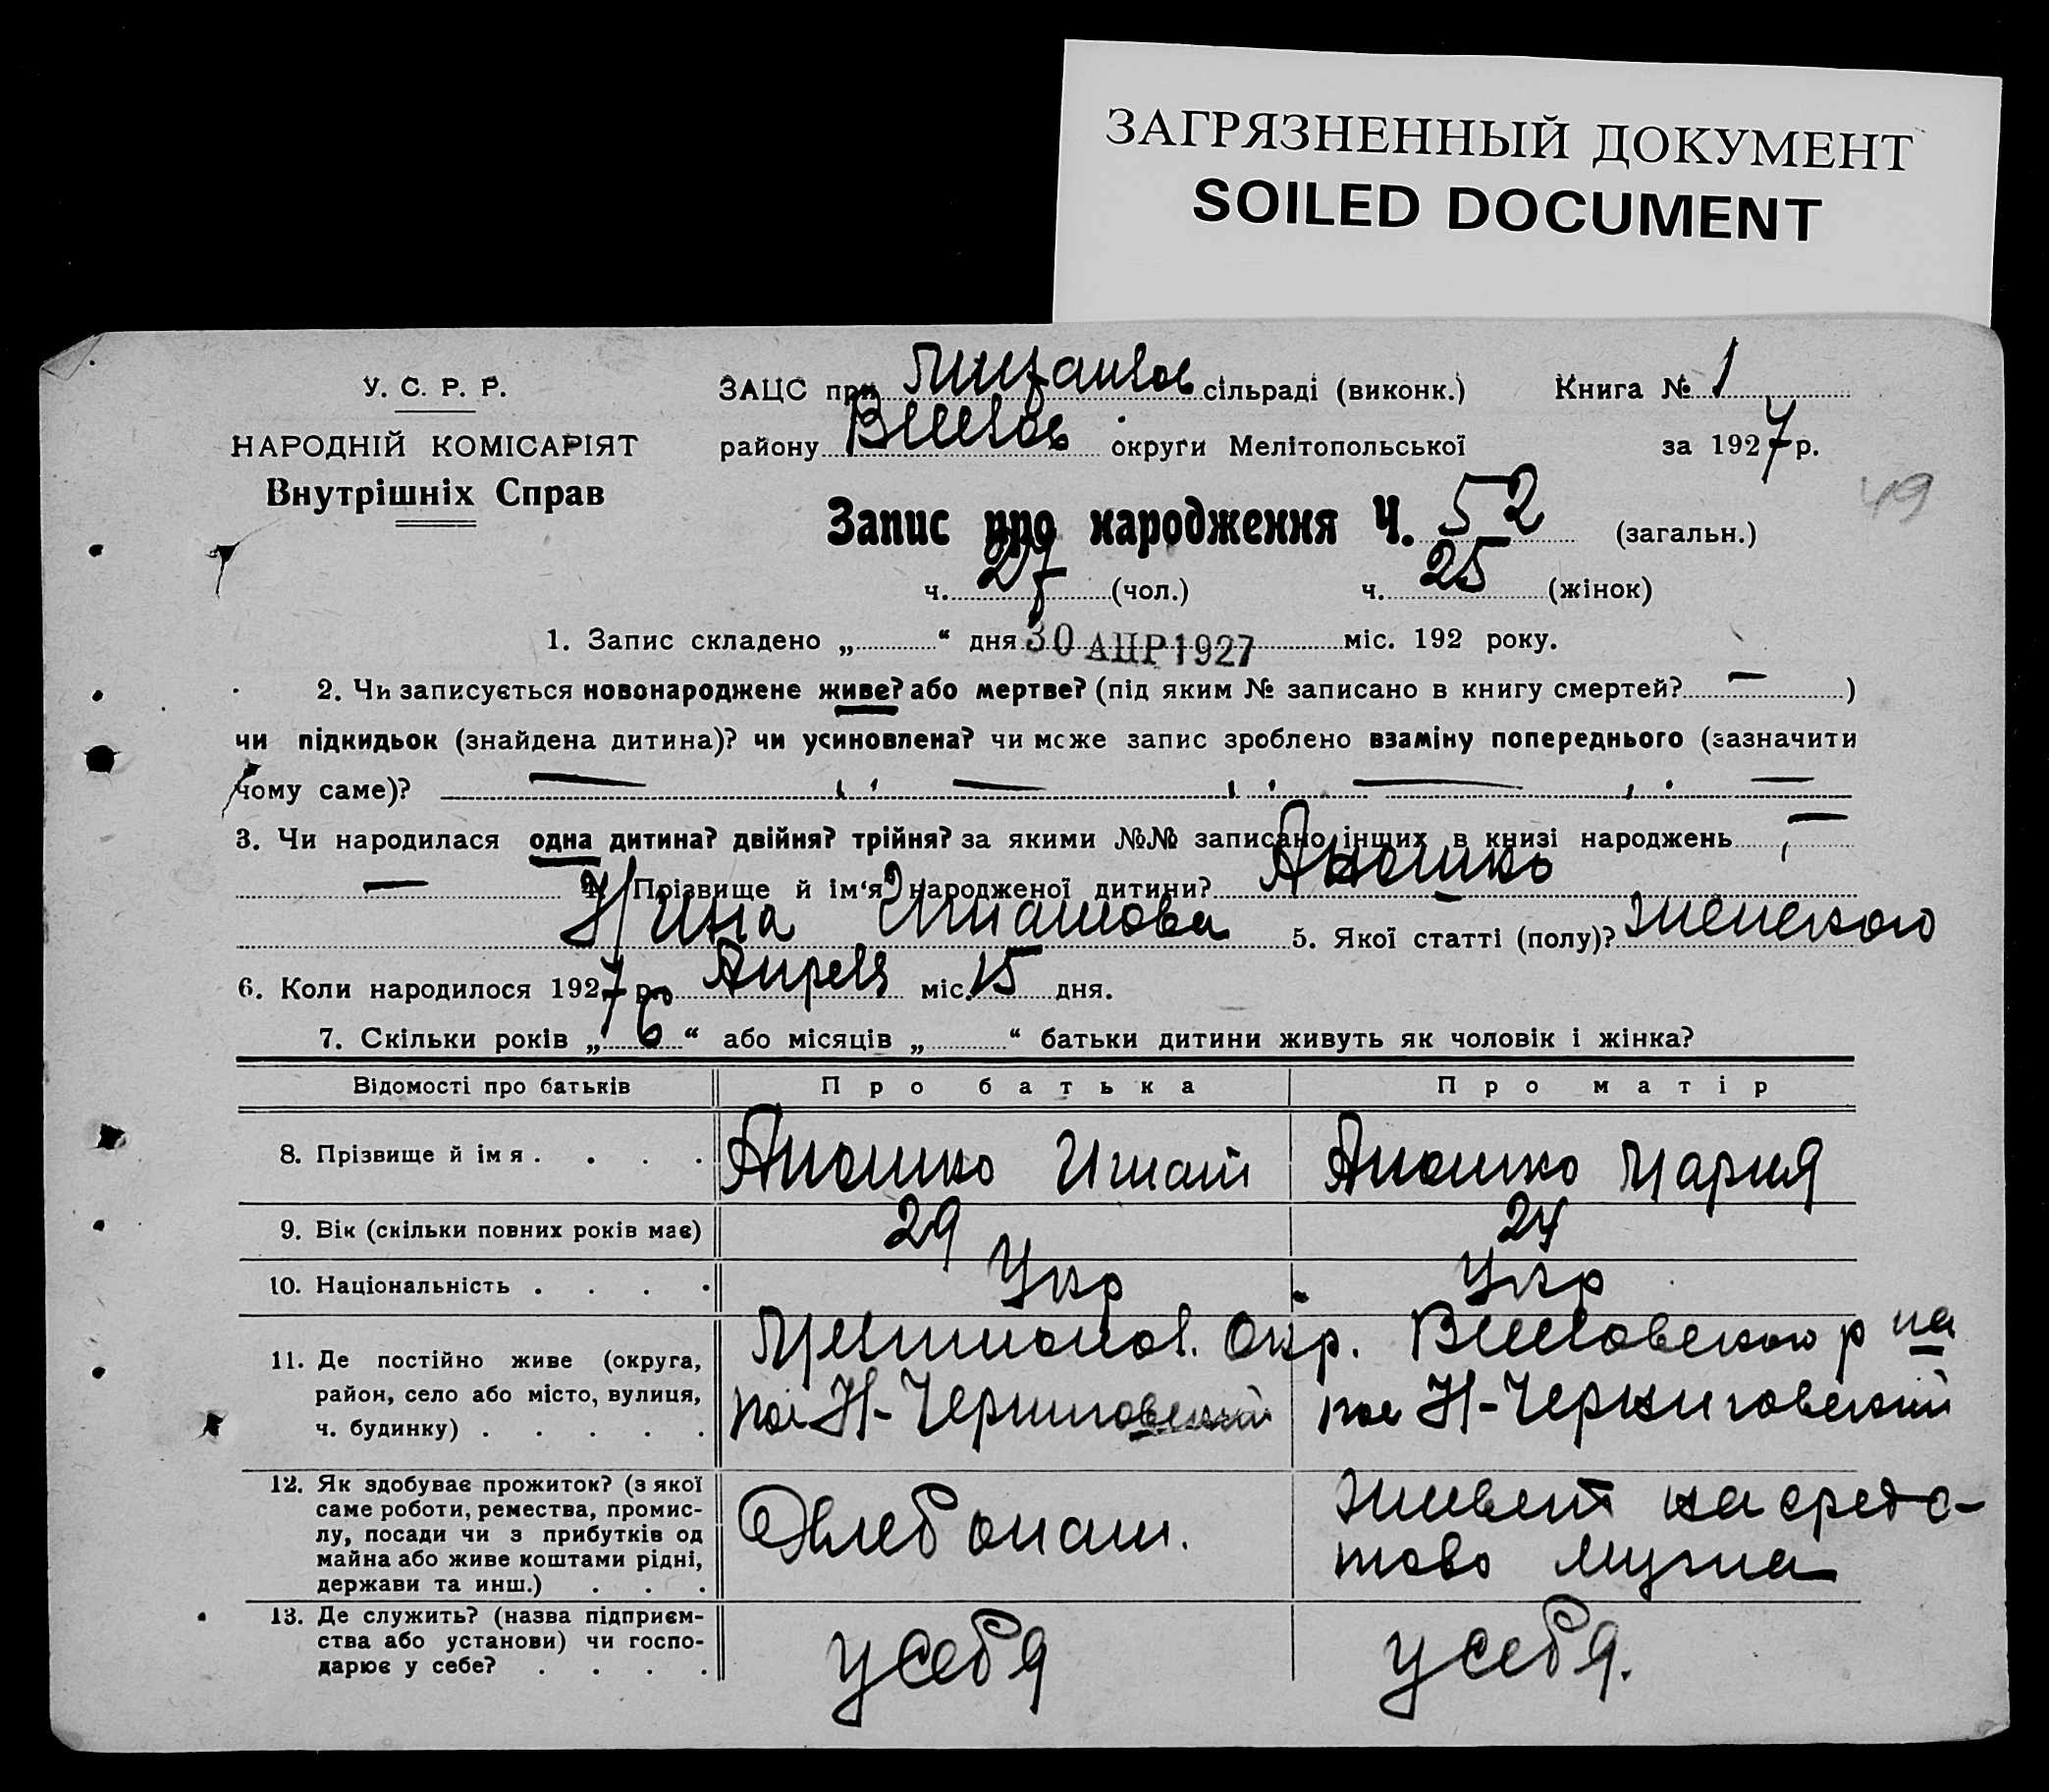 ЗАГРЯЗНЕННЫЙ ДОКУМЕНТ
SOILED DOCUMENT
У. С. Р. Р.
НАРОДНІЙ КОМІСАРІЯТ
Внутрішніх Справ
ЗАЦС при сільраді (виконк.) Книга № 1
району округи Мелітопольської за 1927 р.
49
Запис про народження Ч. 52 (загальн.)
ч. 27 (чол.) ч. 25 (жінок)
1. Запис складено „ “ дня 30 АПР 1927 міс. 192 року.
2. Чи записується новонароджене живе? або мертве? (під яким № записано в книгу смертей? — )
чи підкидьок (знайдена дитина)? чи усиновлена? чи може запис зроблено взаміну попереднього (зазначити
чому саме)? — — — —
3. Чи народилася одна дитина? двійня? трійня? за якими №№ записано інших в книзі народжень —
— 4. Прізвище й ім‘я народженої дитини? Аношко
Нина Игнатова 5. Якої статті (полу)? женского
6. Коли народилося 1927 р. Апреля міс. 15 дня.
7. Скільки років „ 6 “ або місяців „ “ батьки дитини живуть як чоловік і жінка?
Відомості про батьків Про батька Про матір
8. Прізвище й ім я . . . . Аношко Игнат Аношко Мария
9. Вік (скільки повних років має) 29 24
10. Національність . . . . Укр Укр
11. Де постійно живе (округа, район, село або місто, вулиця, ч. будинку) . . . . . Мелитопол. Окр. р на
пос Н-Черниговский пос Н-Черниговский
12. Як здобуває прожиток? (з якої саме роботи, ремества, промислу, посади чи з прибутків од майна або живе коштами рідні, держави та инш.) . . . Хлебопаш. живет на средс-
тво мужа
13. Де служить? (назва підприємства або установи) чи господарює у себе? . . . . у себя у себя.